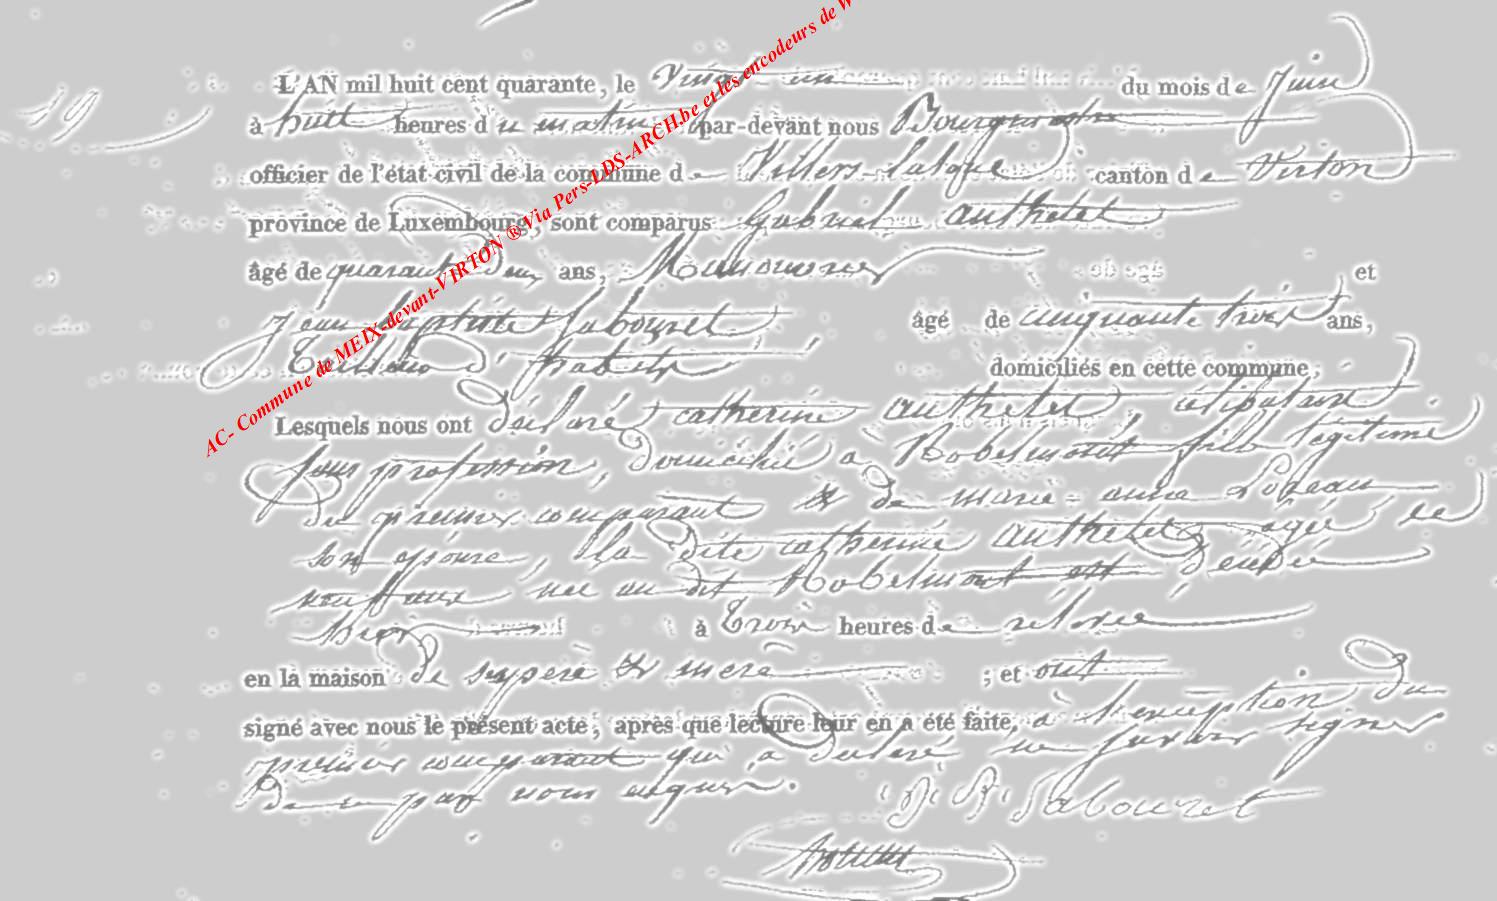 AC- Commune de MEIX-devant-VIRTON ® Via Pers-LDS-ARCH.be et les encodeurs de
19
L'AN mil huit cent quarante, le vingt un du mois de Juin
à huit heures du matin par-devant nous Bourguemestre
officier de l'état civil de la commune de Villers-laloue canton de Virton
province de Luxembourg, sont comparus Gabriel authelet
âgé de quarante deux ans, et
Jean baptiste Labouret âgé de cinquante trois ans,
Tailleur d'habits domiciliés en cette commune,
Lesquels nous ont déclaré catherine authelet célibataire
sans profession, domicilié à Robelmont fille légitime
du premier comparant & de marie-anne
son épouse, la dite catherine authelet agée de
neuf ans née au dit Robelmont est décédé
hier à Trois heures de relevée
en la maison de ses père & mère ; et ont
signé avec nous le présent acte, après que lecture leur en a été faite, à l'exception du
premier comparant qui a déclaré ne savoir signer
de ce par nous enquis.
J. B. Labouret